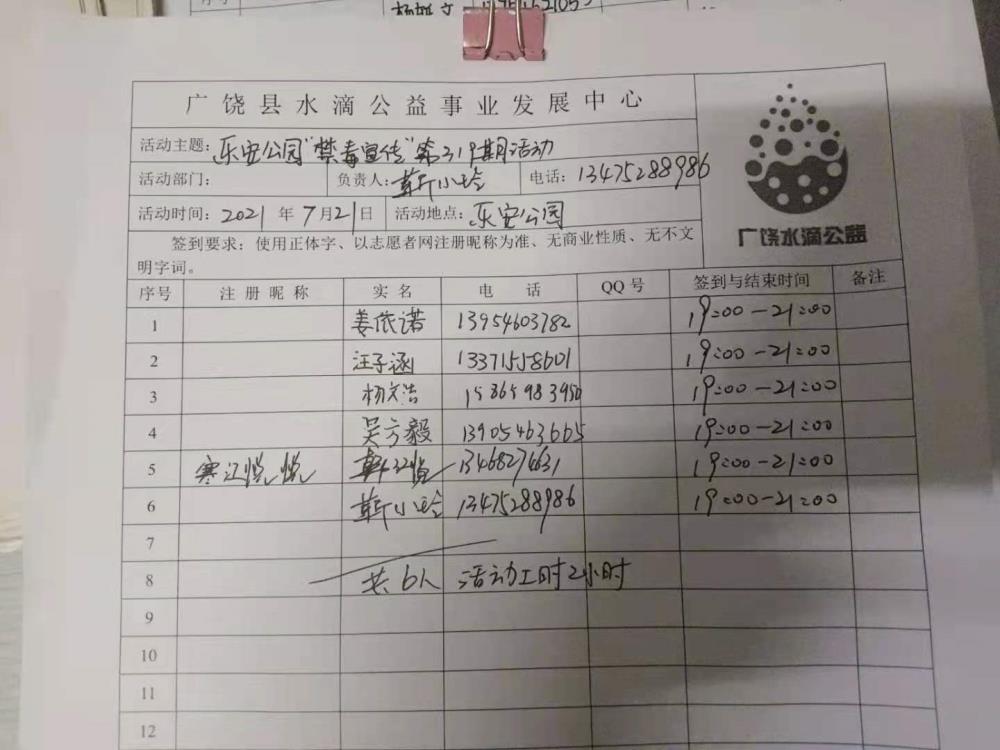 广饶县水滴公益事业发展中心
活动主题：乐安公园“禁毒宣传”第319期活动
活动部门： 负责人：靳小玲 电话：13475288986
活动时间：2021年7月21日 活动地点：乐安公园
广饶水滴公益
签到要求：使用正体字、以志愿者网注册昵称为准、无商业性质、无不文
明字词。
序号 注册昵称 实名 电话 QQ号 签到与结束时间 备注
1 姜依诺 13954603782 19:00-21:00
2 汪子涵 13371558601 19:00-21:00
3 杨文浩 15865983950 19:00-21:00
4 吴方毅 13905463665 19:00-21:00
5 寒江悦悦 13468274631 19:00-21:00
6 靳小玲 13475288986 19:00-21:00
7
8 共6人 活动工时2小时
9
10
11
12